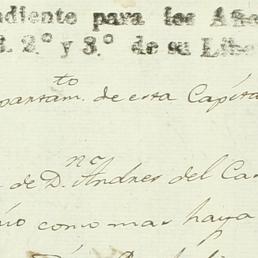 ndiente para los Año
3. 2.º y 3.º de su Libe
partam.to de esta Capita
n.ª de D.n Andres del Ca
io como mas haya